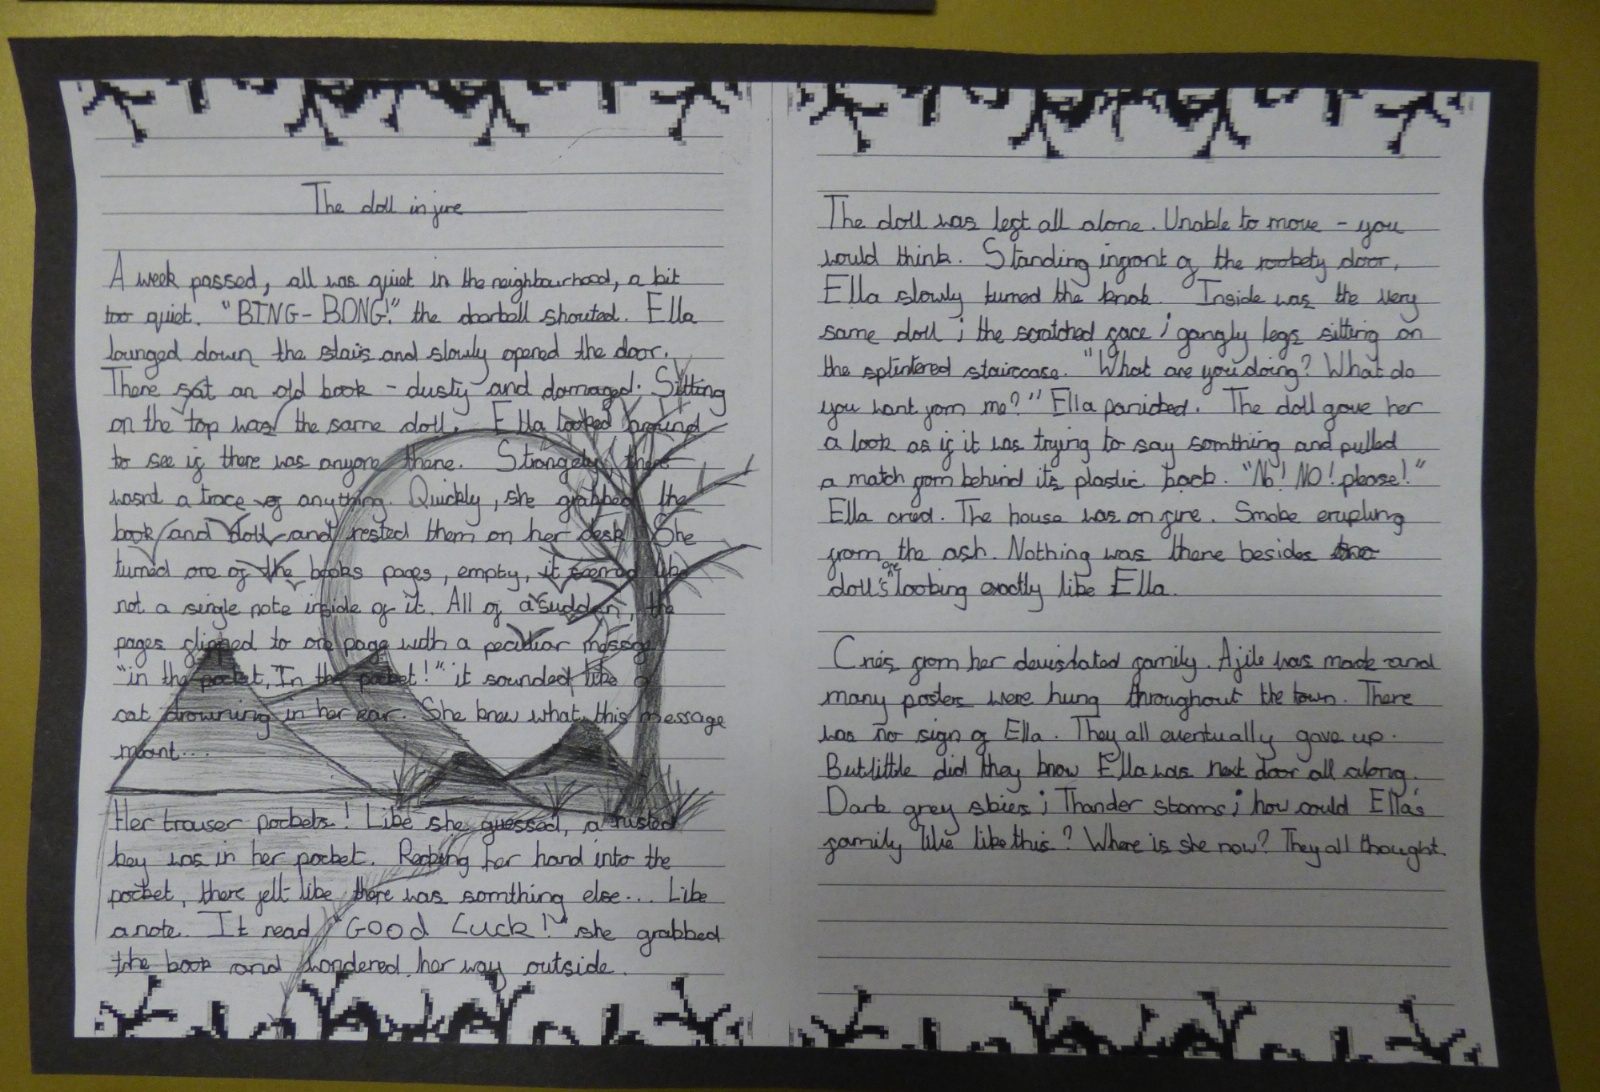 The doll in fire
A week passed, all was quiet in the neighbourhood, a bit
too quiet. "BING-BONG!" the doorbell shouted. Ella
lounged down the stairs and slowly opened the door.
There sat an old book - dusty and damaged. Sitting
on the top was the same doll. Ella looked around
to see if there was anyone there. Strangely, there
wasnt a trace of anything. Quickly, she grabbed the
book and doll and rested them on her desk. She
turned one of the books pages, empty, it seemed like
not a single note inside of it. All of a sudden, the
pages flipped to one page with a peculiar message
"in the pocket, In the pocket!" it sounded like a
cat drowning in her ear. She knew what this message
meant...
Her trouser pockets! Like she guessed, a rusted
key was in her pocket. Reeking her hand into the
pocket, there felt like there was somthing else... Like
a note. It read "Good Luck!" she grabbed
the book and wondered her way outside.
The doll was left all alone. Unable to move - you
would think. Standing infront of the rookety door,
Ella slowly turned the knob. Inside was the very
same doll ; the scratched face ; gangly legs sitting on
the splintered staircase. "What are you doing? What do
you want from me?" Ella panicked. The doll gave her
a look as if it was trying to say somthing and pulled
a match from behind its plastic back. "No! NO! please!"
Ella cried. The house was on fire. Smoke erupting
from the ash. Nothing was there besides
doll's one looking exactly like Ella.
Cries from her devistated family. A file was made and
many posters were hung throughout the town. There
was no sign of Ella. They all eventually gave up.
But little did they know Ella was next door all along.
Dark grey skies ; Thander storms ; how could Ella's
family live like this? Where is she now? They all thought.